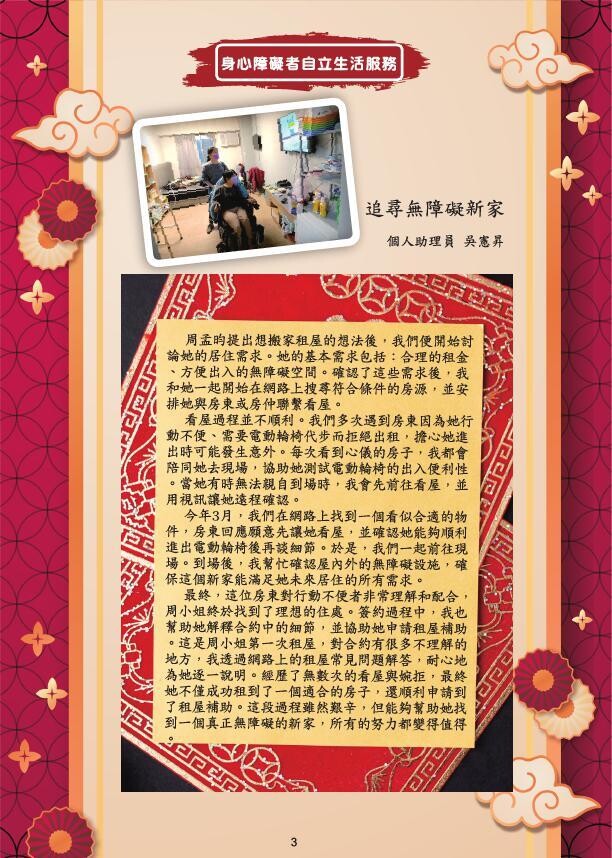 身心障礙者自立生活服務
追尋無障礙新家
個人助理員 吳憲昇
周孟昀提出想搬家租屋的想法後，我們便開始討
論她的居住需求。她的基本需求包括：合理的租金
、方便出入的無障礙空間。確認了這些需求後，我
和她一起開始在網路上搜尋符合條件的房源，並安
排她與房東或房仲聯繫看屋。
看屋過程並不順利。我們多次遇到房東因為她行
動不便、需要電動輪椅代步而拒絕出租，擔心她進
出時可能發生意外。每次看到心儀的房子，我都會
陪同她去現場，協助她測試電動輪椅的出入便利性
。當她有時無法親自到場時，我會先前往看屋，並
用視訊讓她遠程確認。
今年3月，我們在網路上找到一個看似合適的物
件，房東回應願意先讓她看屋，並確認她能夠順利
進出電動輪椅後再談細節。於是，我們一起前往現
場。到場後，我幫忙確認屋內外的無障礙設施，確
保這個新家能滿足她未來居住的所有需求。
最終，這位房東對行動不便者非常理解和配合，
周小姐終於找到了理想的住處。簽約過程中，我也
幫助她解釋合約中的細節，並協助她申請租屋補助
。這是周小姐第一次租屋，對合約有很多不理解的
地方，我透過網路上的租屋常見問題解答，耐心地
為她逐一說明。經歷了無數次的看屋與婉拒，最終
她不僅成功租到了一個適合的房子，還順利申請到
了租屋補助。這段過程雖然艱辛，但能夠幫助她找
到一個真正無障礙的新家，所有的努力都變得值得
。
3